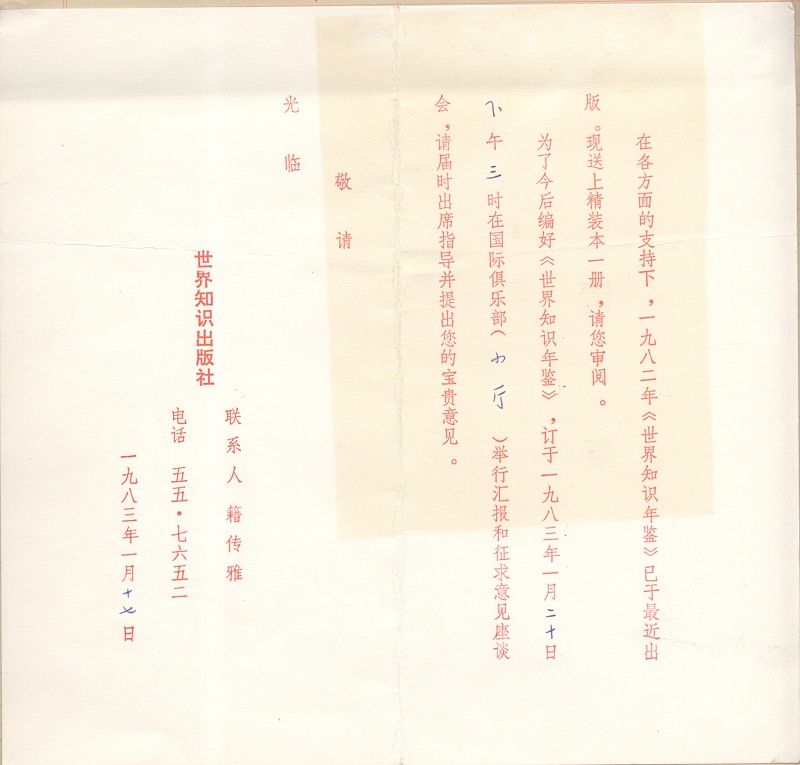 在各方面的支持下，一九八二年《世界知识年鉴》已于最近出
版。现送上精装本一册，请您审阅。
为了今后编好《世界知识年鉴》，订于一九八三年一月二十日
下午三时在国际俱乐部（小厅）举行汇报和征求意见座谈
会，请届时出席指导并提出您的宝贵意见。
敬请
光临
联系人 籍传雅
世界知识出版社
电话 五五·七六五二
一九八三年一月十七日